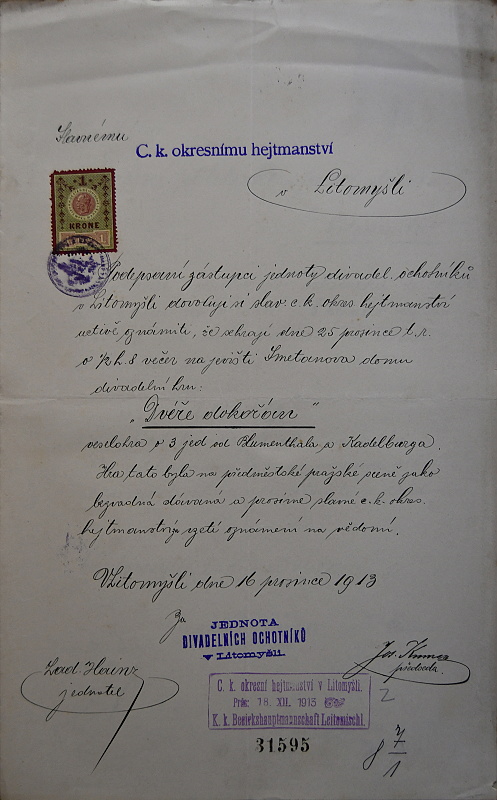 Slavnému
C. k. okresnímu hejtmanství
v Litomyšli
1
KRONE
1
Podepsaní zástupci jednoty divadel. ochotníků
v Litomyšli dovolují si slav. c. k. okres. hejtmanství
uctivě oznámiti, že sehrají dne 25 prosince t. r.
o ½ h. 8 večer na jevišti Smetanova domu
divadelní hru:
„Dvéře dokořán"
veselohra o 3 jed. od Blumenthala a Kadelburga.
Hra tato byla na předměstské pražské sceně jako
bezvadná dávaná a prosíme slavné c. k. okres.
hejtmanství vzetí oznámení na vědomí.
V Litomyšli dne 16 prosince 1913
Za
JEDNOTA
DIVADELNÍCH OCHOTNÍKŮ
v Litomyšli.
Lad. Hainz
jednatel
Jos.
předseda
C. k. okresní hejtmanství v Litomyšli.
Präs: 18. XII. 1913
K. k. Bezirkshauptmannschaft Leitomischl.
31595
7
1